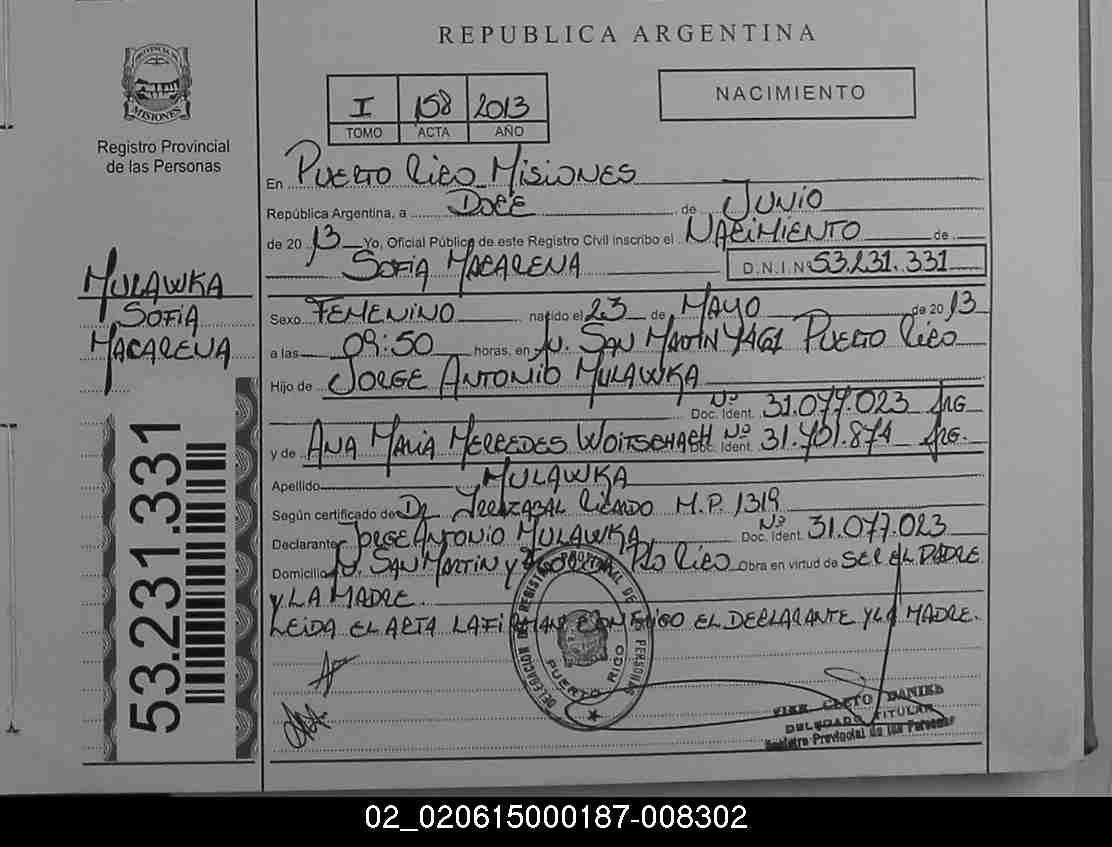 REPUBLICA ARGENTINA
PROVINCIA DE MISIONES
Registro Provincial
de las Personas
I 158 2013
TOMO ACTA AÑO
NACIMIENTO
En PUERTO RICO MISIONES
República Argentina, a DOCE de JUNIO
de 2013 Yo, Oficial Público de este Registro Civil inscribo el NACIMIENTO de
SOFIA MACARENA D.N.I.Nº 53.231.331
MULAWKA
SOFIA
MACARENA
Sexo FEMENINO nacido el 23 de MAYO de 2013
a las 09:50 horas, en AV. SAN MARTIN Y PUERTO RICO
Hijo de JORGE ANTONIO MULAWKA
Doc. Ident. Nº 31.077.023 ARG
y de ANA MARIA MERCEDES WOITSCHACH Doc. Ident. Nº 31.401.874 ARG.
Apellido MULAWKA
Según certificado de DR IRRAZABAL RICARDO M.P. 1319
Declarante JORGE ANTONIO MULAWKA Doc. Ident. Nº 31.077.023
Domicilio AV. SAN MARTIN Y PTO RICO Obra en virtud de SER EL PADRE
Y LA MADRE.
LEIDA EL ACTA LA FIRMAN CONMIGO EL DECLARANTE Y LA MADRE.
53.231.331
DELEGACION DEL REGISTRO PROVINCIAL DE LAS PERSONAS
PUERTO RICO
CLETO DANIEL
DELEGADO TITULAR
Registro Provincial de las Personas
02_020615000187-008302